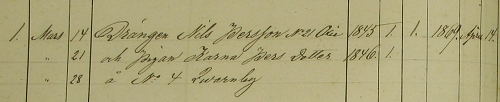 1. Mars 14 Drängen Nils Persson No 21 Oxie 1845 1. 1. 1869. April 14.
" 21 och Pigan Karna Pers Dotter 1846. 1.
" 28 å No 4 Qvarnby